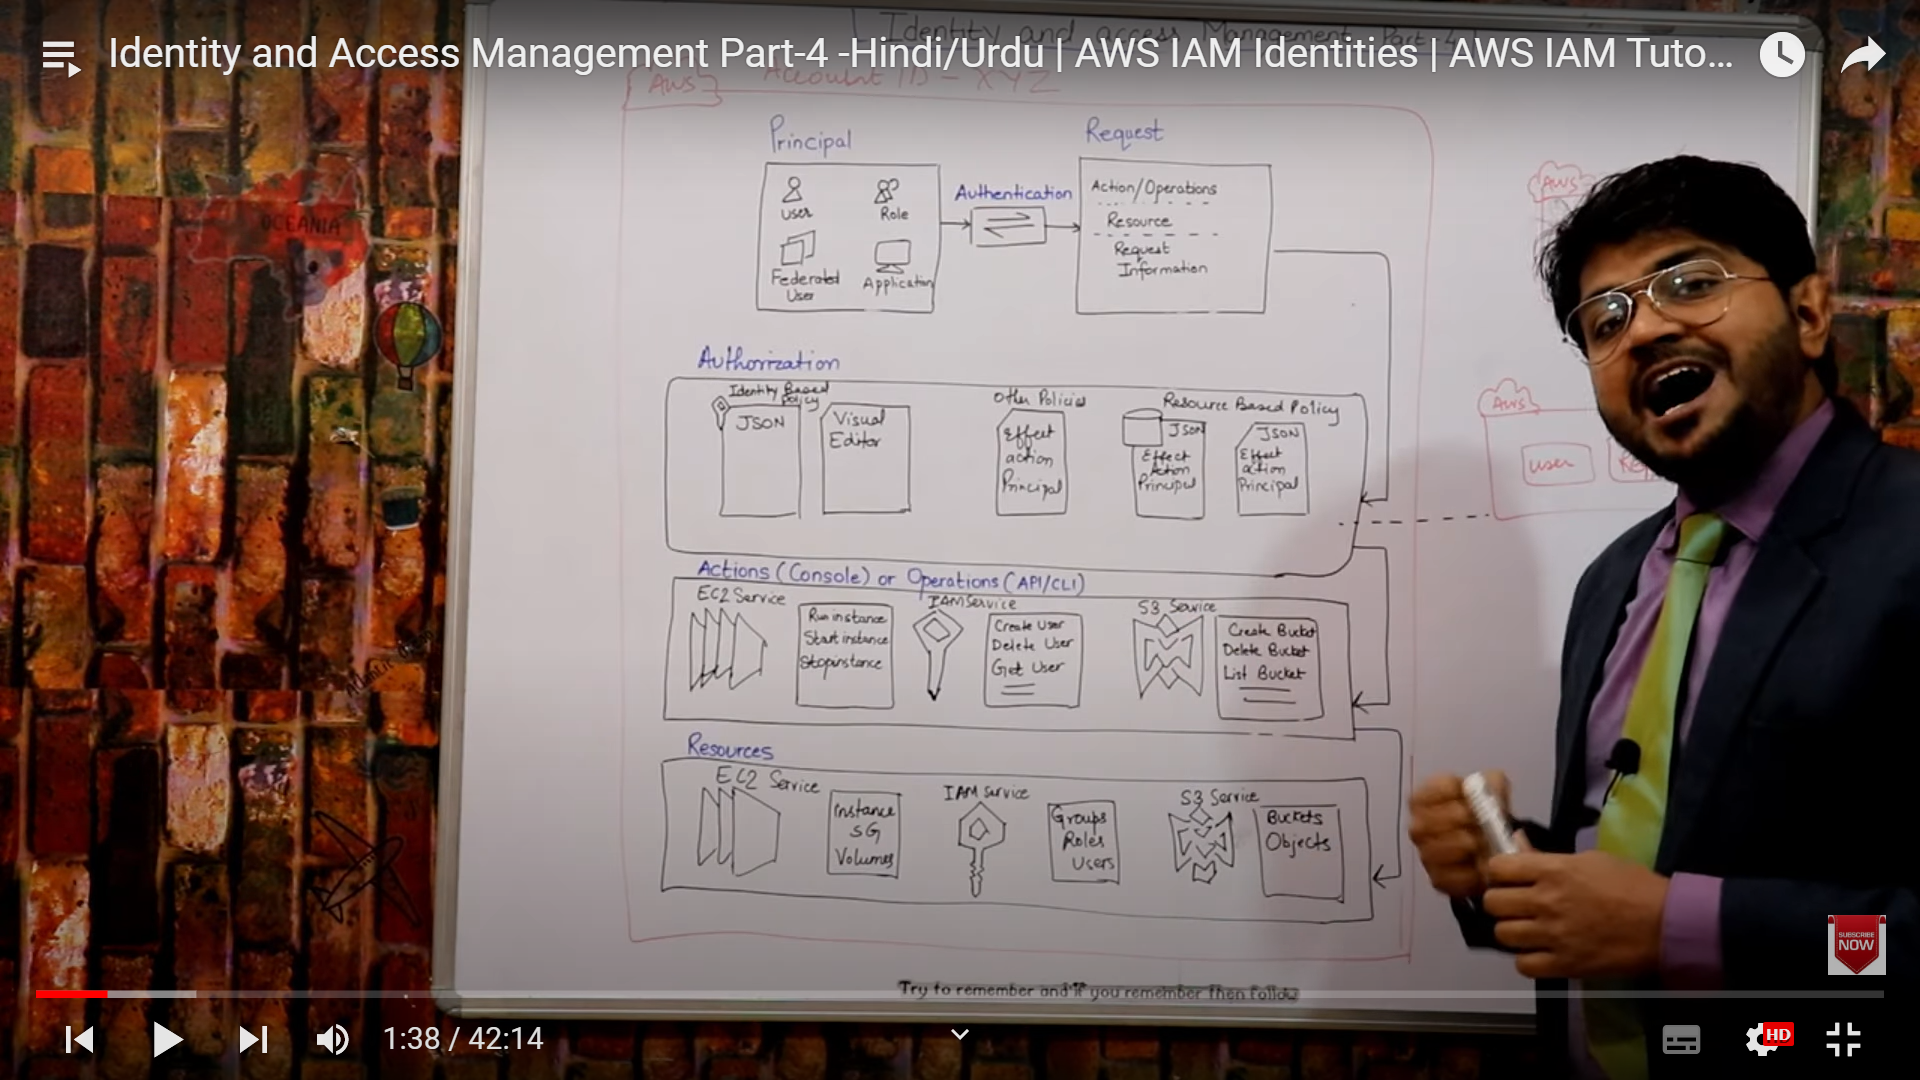 Identity and access Management Part-4
Identity and Access Management Part-4 -Hindi/Urdu | AWS IAM Identities | AWS IAM Tuto...
AWS Account ID - XYZ
Principal
Request
User
Role
Federated
User
Application
Authentication
Action/Operations
Resource
Request
Information
AWS
Authorization
Identity Based
Policy
JSON
Visual
Editor
Other Policies
Effect
action
Principal
Resource Based Policy
JSON
Effect
Action
Principal
JSON
Effect
action
Principal
AWS
user
Actions (Console) or Operations (API/CLI)
EC2 Service
Run instance
Start instance
Stopinstance
IAM Service
Create User
Delete User
Get User
S3 Service
Create Bucket
Delete Bucket
List Bucket
Resources
EC2 Service
Instance
SG
Volumes
IAM Service
Groups
Roles
Users
S3 Service
Buckets
Objects
OCEANIA
Atlantic
SUBSCRIBE
NOW
Try to remember and if you remember then follow
1:38 / 42:14
HD